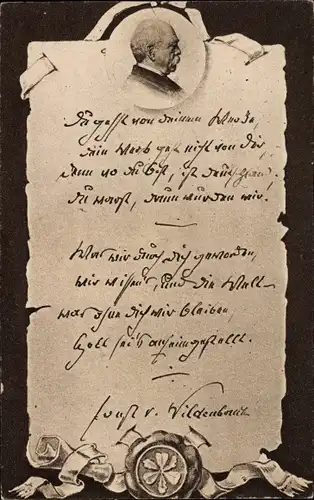 Du gehst von Deinem Werke,
Dein Werk geht nicht von Dir,
Denn wo Du bist, ist Deutschland,
Du warst, drum wurden wir.
Was wir durch Dich geworden,
wir wissen's, und die Welt –
was ohne Dich wir bleiben,
Gott sei's anheimgestellt.
Ernst v. Wildenbruch